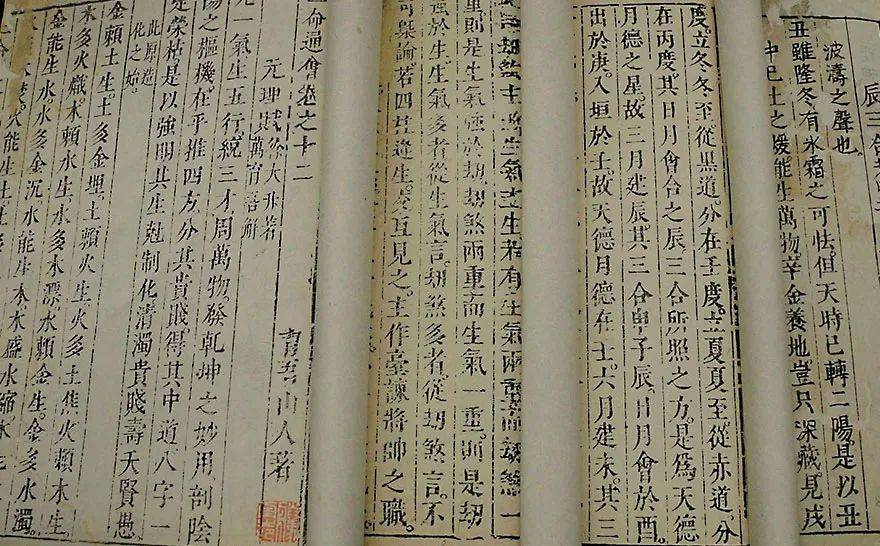 辰三合
波濤之聲也。
丑雖隆冬有氷霜之可怯。但天時已轉二陽是以丑
中巳土之煖能生萬物。辛金養地。豈只深藏。見戌
度。立冬冬至從黑道。分在壬度。立夏夏至從赤道。分
在丙度。其日月會合之辰三合所照之方。是為天德
月德之星。故三月建辰。其三合申子辰。日月會於酉
出於庚。入垣於壬。故天德月德在壬。六月建未。其三
刧煞主 生氣主生若有生氣兩重而刧煞一
重。則是生氣強於刧。刧煞兩重而生氣一重。則是刧
強於生。生氣多者從生氣言。刧煞多者從刧煞言。不
可槩論。若四柱逢生處互見之。主作臺諫將帥之職。
命通會卷之十二
育吾山人著
元理賦 徐大升著
萬育吾解
元一氣生五行統三才周萬物。發乾坤之妙用剖陰
陽之樞機。在乎推四方。分其貴賤。得其中道八字一
定榮枯。是以強明其生尅制化清濁貴賤壽夭賢愚。
此原造
化之始。
金賴土生。土多金埋。土賴火生。火多土焦。火賴木生。
木多火熾。木賴水生。水多木漂。水賴金生。金多水濁。
金能生水。水多金沉。水能生木。木盛水縮。木
火能生土。土